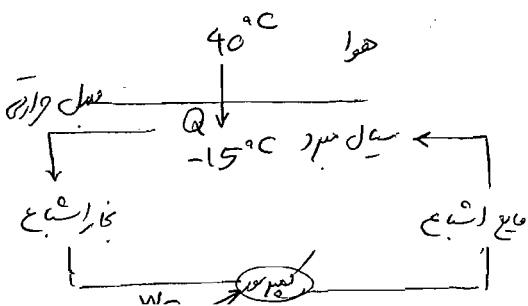 40°C
هوا
مبدل حرارتی
Q
-15°C
سیال مبرد
بخار اشباع
مایع اشباع
کمپرسور